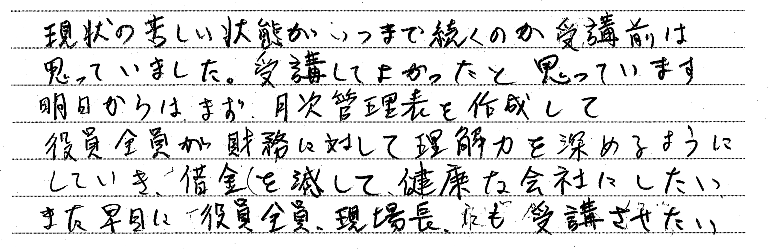 現状の苦しい状態がいつまで続くのか受講前は
思っていました。受講してよかったと思っています
明日からは、まず、月次管理表を作成して
役員全員が財務に対して理解力を深めるように
していき、借金を減して、健康な会社にしたい、
また早目に役員全員、現場長、にも受講させたい、